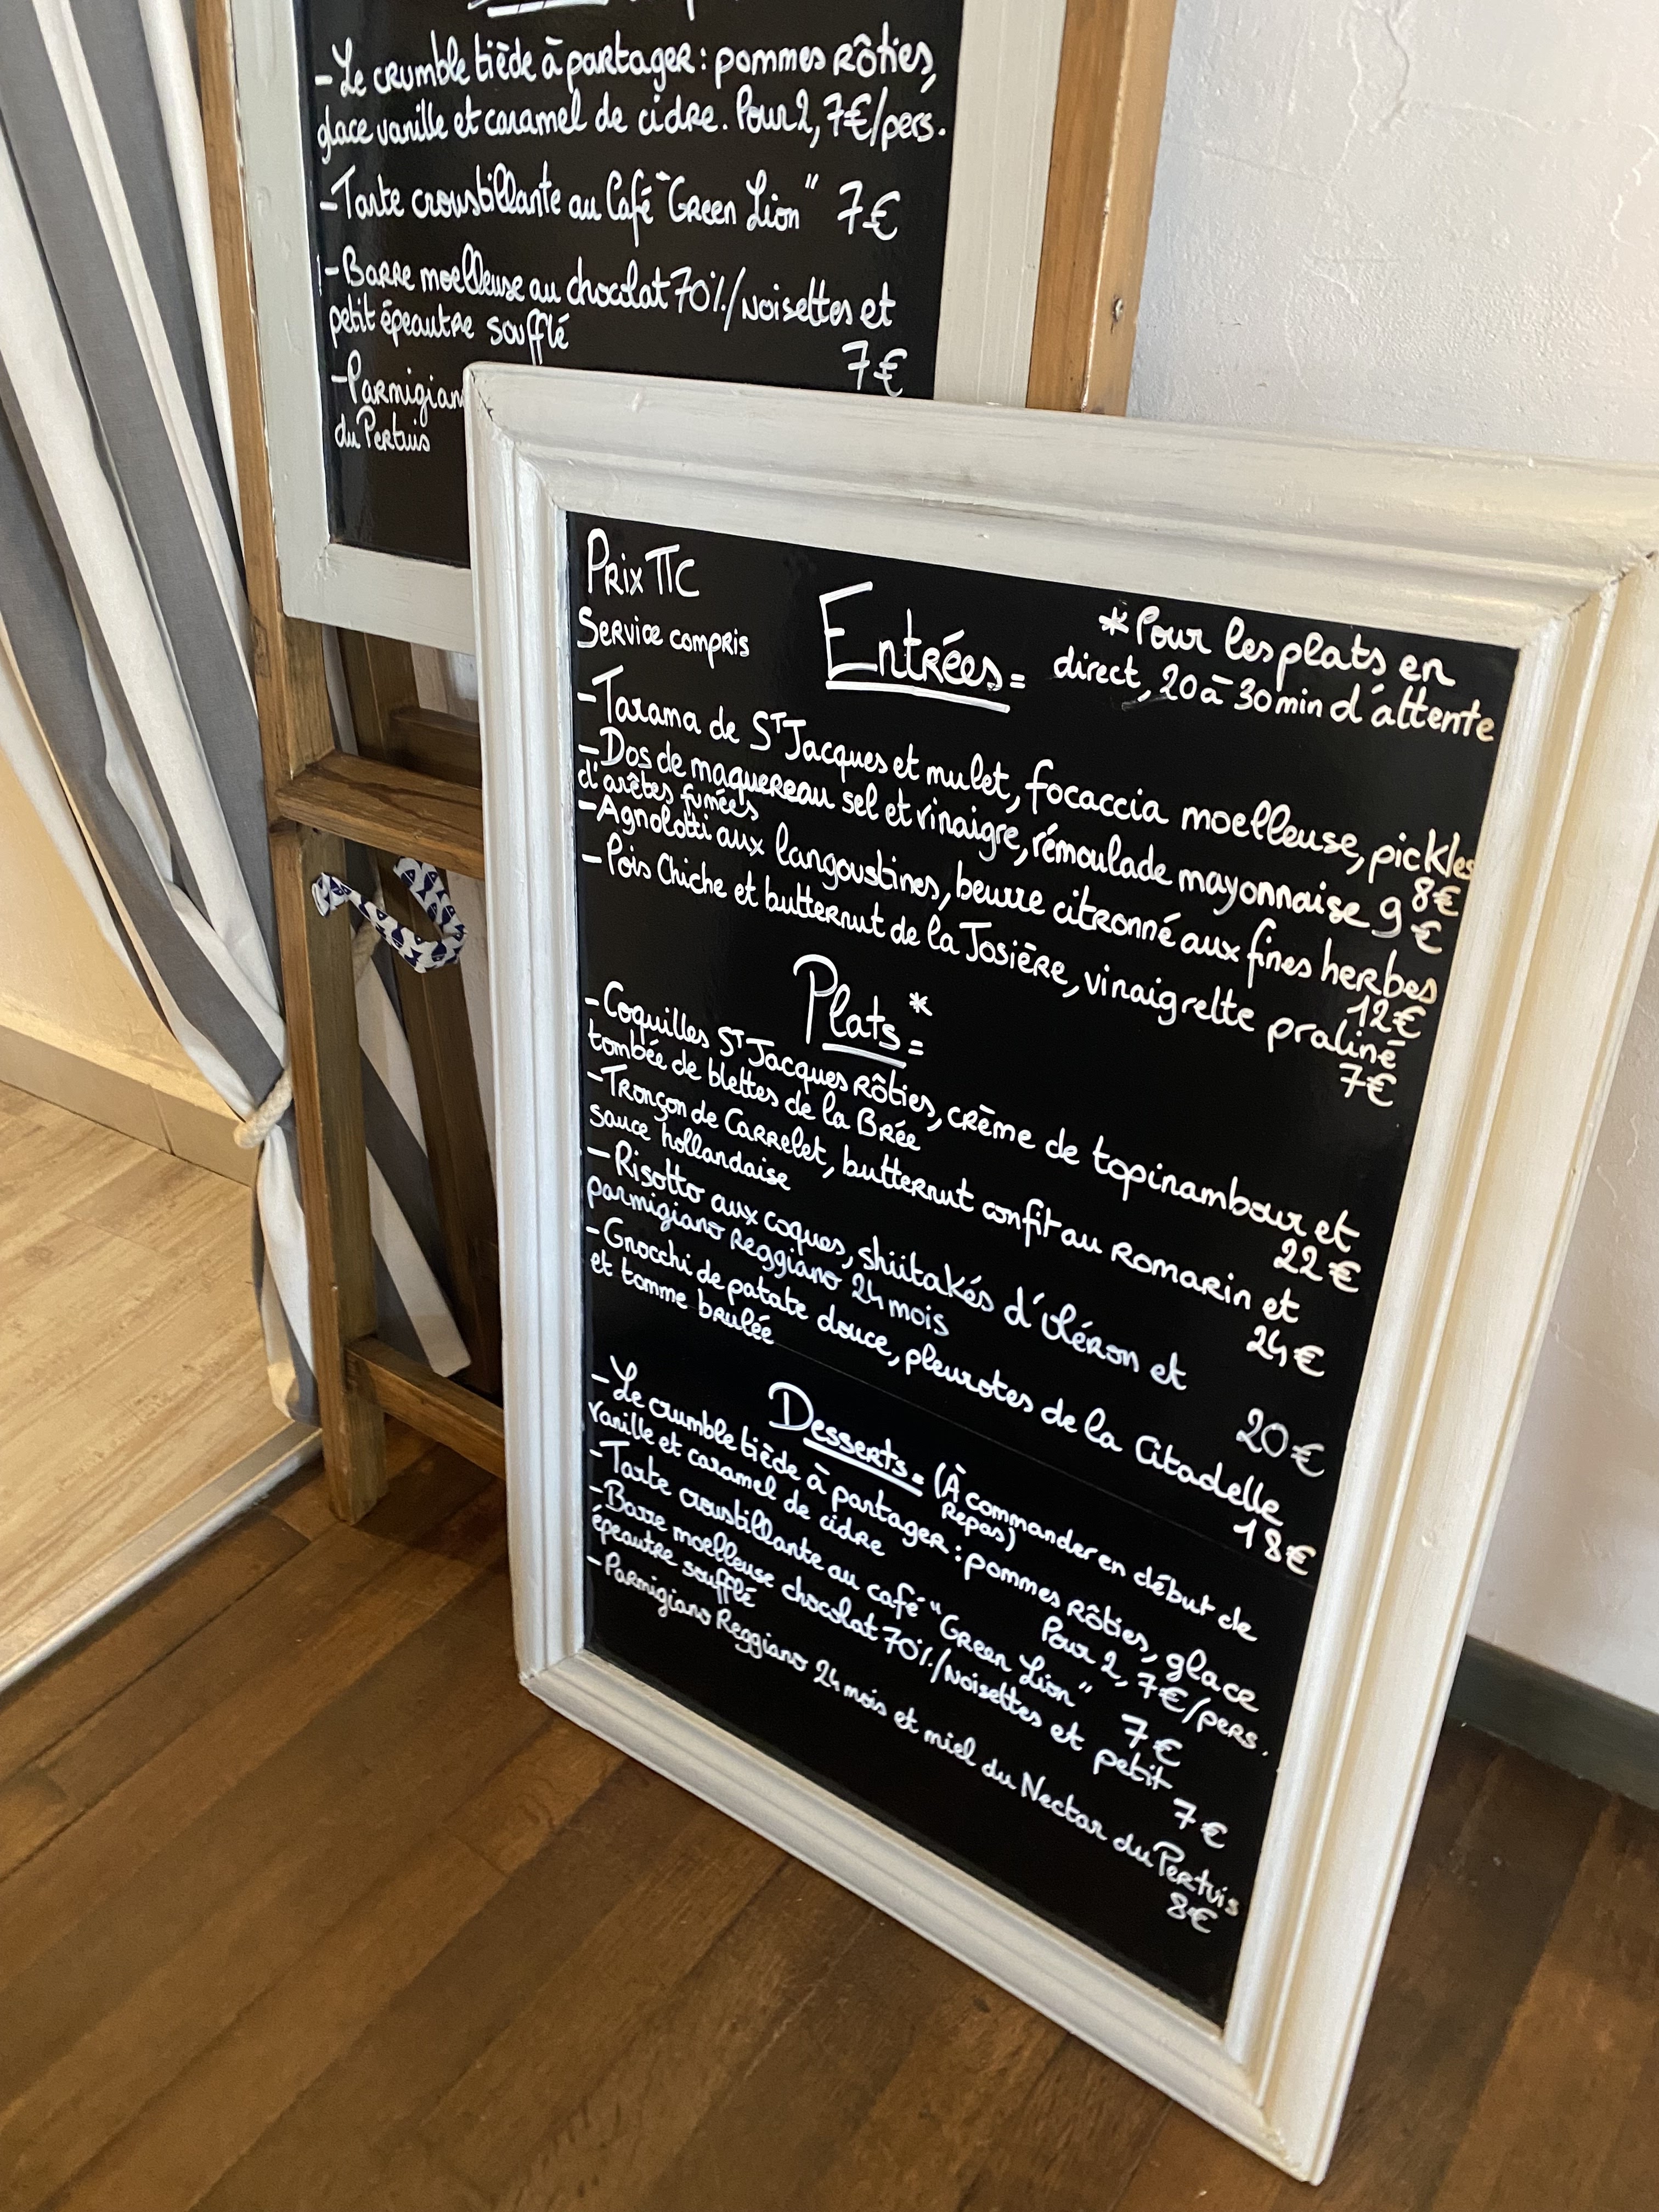 - Le crumble tiède à partager : pommes Rôties,
glace vanille et caramel de cidre. Pour 2, 7€/pers.
- Tarte croustillante au Café "Green Lion" 7€
- Barre moelleuse au chocolat 70%/Noisettes et
petit épeautre soufflé
7€
- Parmigian
du Pertuis
Prix TTC
Service compris
Entrées =
* Pour les plats en
direct, 20 à 30 min d'attente
- Tarama de St Jacques et mulet, focaccia moelleuse, pickles
8€
- Dos de maquereau sel et vinaigre, rémoulade mayonnaise
d'arêtes fumées
9€
- Agnolotti aux langoustines, beurre citronné aux fines herbes
12€
- Pois Chiche et butternut de la Josière, vinaigrette praliné
7€
Plats * =
- Coquilles St Jacques Rôties, crème de topinambour et
tombée de blettes de la Brée
22€
- Tronçon de Carrelet, butternut confit au Romarin et
sauce hollandaise
24€
- Risotto aux coques, shiitakés d'Oléron et
parmigiano Reggiano 24 mois
20€
- Gnocchi de patate douce, pleurotes de la Citadelle
et tomme brulée
18€
Desserts = (À commander en début de
Repas)
- Le crumble tiède à partager : pommes Rôties, glace
vanille et caramel de cidre
Pour 2, 7€/pers.
- Tarte croustillante au café "Green Lion"
7€
- Barre moelleuse chocolat 70%/Noisettes et petit
épeautre soufflé
7€
- Parmigiano Reggiano 24 mois et miel du Nectar du Pertuis
8€